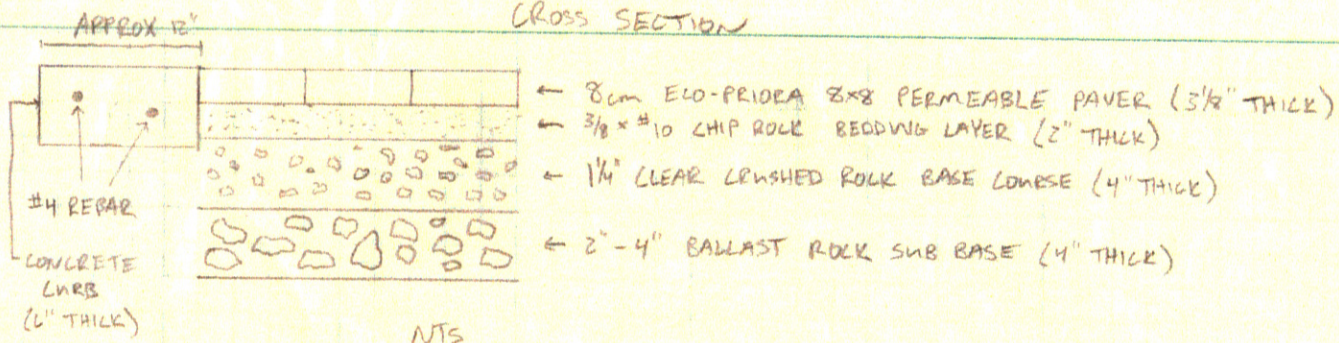 CROSS SECTION
APPROX 12"
← 8cm ECO-PRIORA 8x8 PERMEABLE PAVER (3 1/8" THICK)
← 3/8 x #10 CHIP ROCK BEDDING LAYER (2" THICK)
← 1 1/4" CLEAR CRUSHED ROCK BASE COURSE (4" THICK)
← 2" - 4" BALLAST ROCK SUB BASE (4" THICK)
#4 REBAR
CONCRETE
CURB
(6" THICK)
NTS